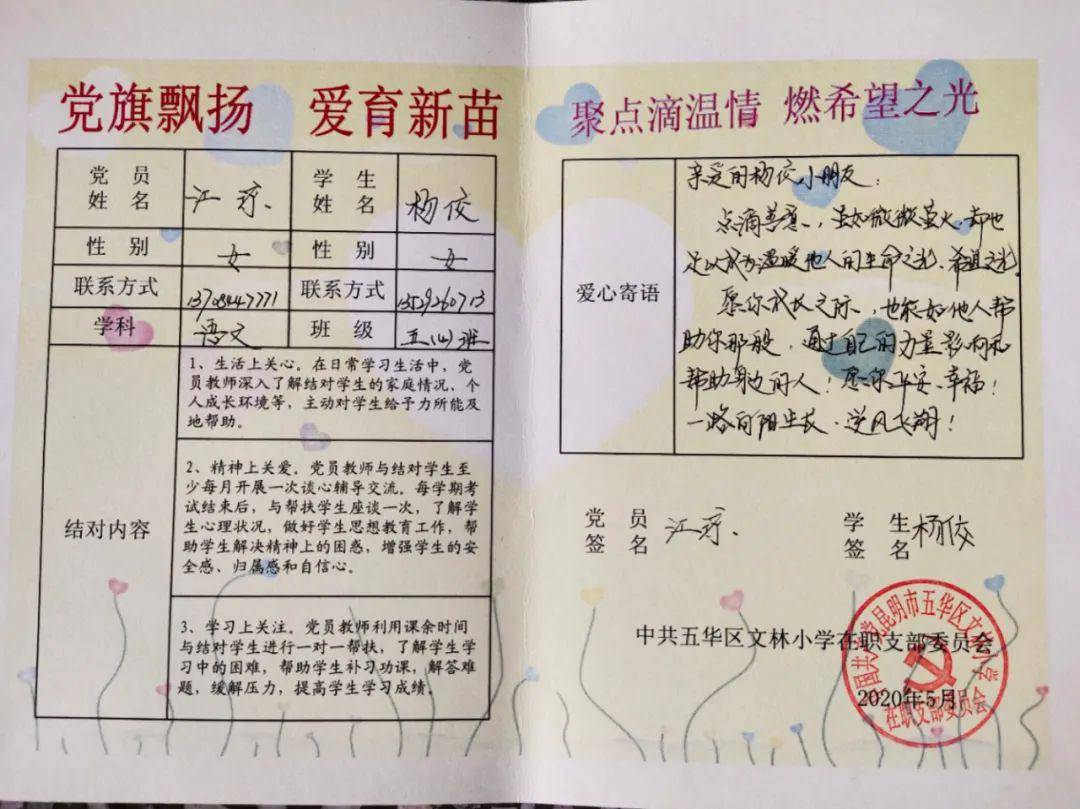 党旗飘扬 爱育新苗
党员姓名 江 学生姓名 杨佼
性别 女 性别 女
联系方式 13708447771 联系方式 13529260713
学科 语文 班级 五(4)班
结对内容
1、生活上关心。在日常学习生活中，党
员教师深入了解结对学生的家庭情况、个
人成长环境等，主动对学生给予力所能及
地帮助。
2、精神上关爱。党员教师与结对学生至
少每月开展一次谈心辅导交流。每学期考
试结束后，与帮扶学生座谈一次，了解学
生心理状况，做好学生思想教育工作，帮
助学生解决精神上的困惑，增强学生的安
全感、归属感和自信心。
3、学习上关注。党员教师利用课余时间
与结对学生进行一对一帮扶，了解学生学
习中的困难，帮助学生补习功课，解答难
题，缓解压力，提高学生学习成绩。
聚点滴温情 燃希望之光
爱心寄语
亲爱的杨佼小朋友：
点滴善意，虽如微微萤火，却也
足以成为温暖他人的生命之光、希望之光。
愿你成长之际，也能如他人帮
助你那般，通过自己的力量影响和
帮助身边的人！愿你平安、幸福！
一路向阳生长，逆风飞翔！
党员签名 江 学生签名 杨佼
中共五华区文林小学在职支部委员会
2020年5月
中国共产党昆明市五华区文林小学
在职支部委员会